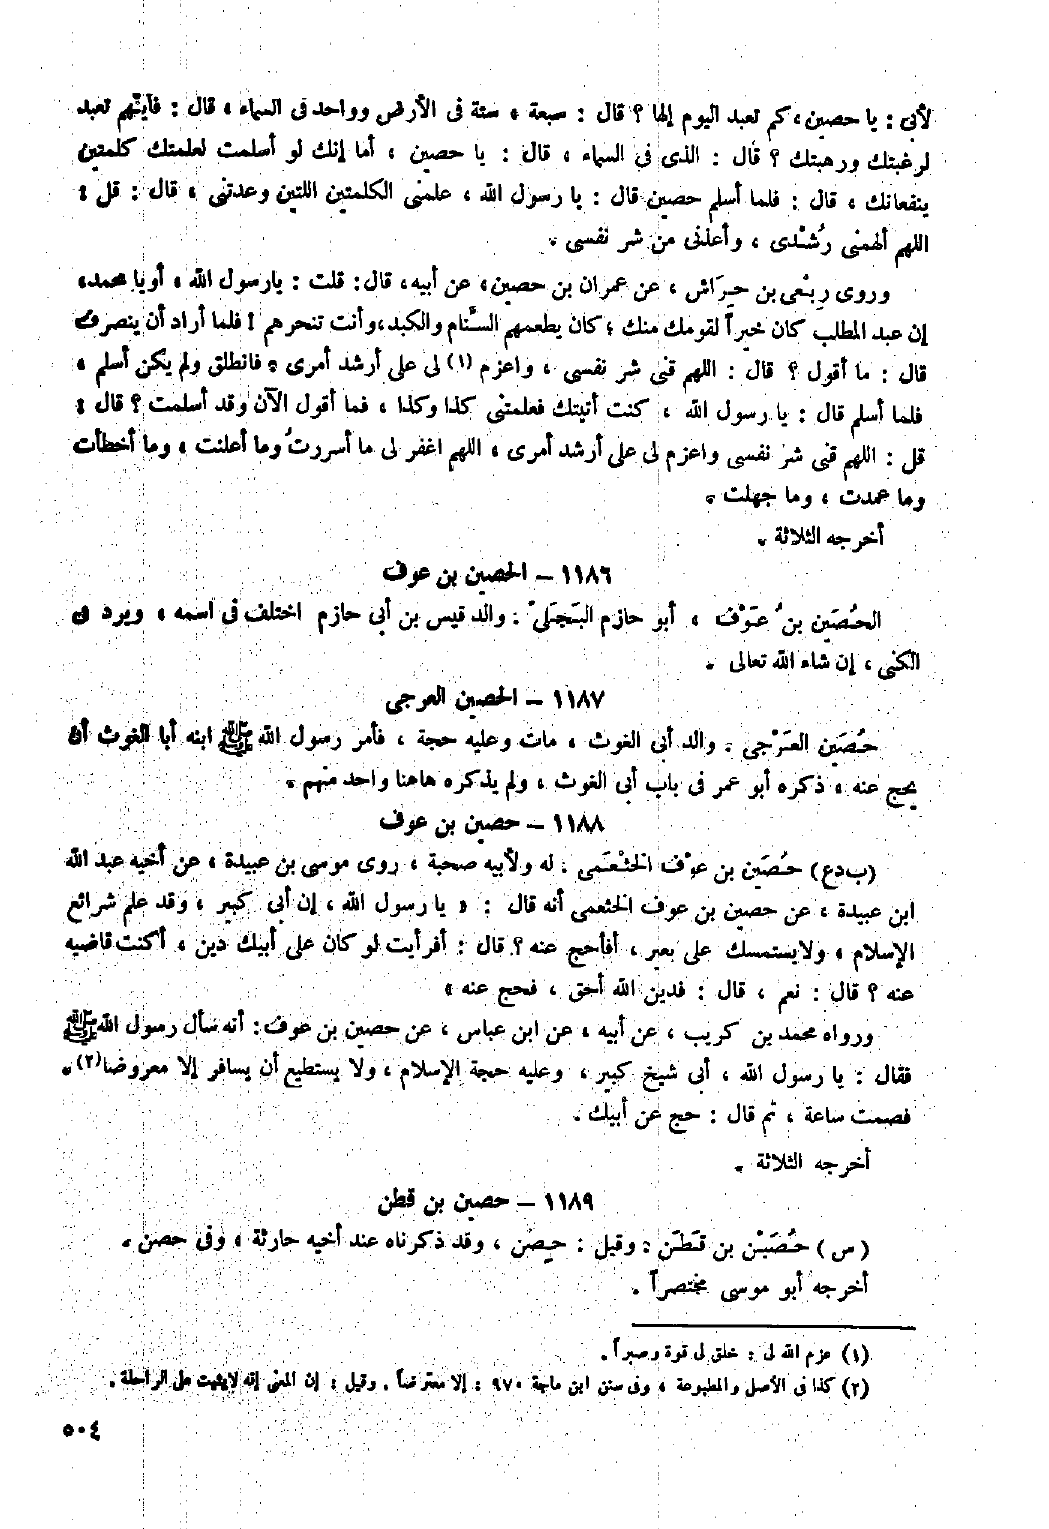 لأبى : يا حصين ، كم تعبد اليوم إلها ؟ قال : سبعة ، ستة فى الأرض وواحد فى السماء ، قال : فأيتهم تعبد
لرغبتك ورهبتك ؟ قال : الذى فى السماء ، قال : يا حصين ، أما إنك لو أسلمت لعلمتك كلمتين
ينفعانك ، قال : فلما أسلم حصين قال : يا رسول الله ، علمنى الكلمتين اللتين وعدتنى ، قال : قل :
اللهم ألهمنى رُشْدى ، وأعذنى من شر نفسى .
وروى رِبْعى بن حِرَاش ، عن عمران بن حصين ، عن أبيه ، قال : قلت : يارسول الله ، أو يا محمد ،
إن عبد المطلب كان خيراً لقومك منك ؛ كان يطعمهم السَّنام والكبد ، وأنت تنحرهم ! فلما أراد أن ينصرف
قال : ما أقول ؟ قال : اللهم قنى شر نفسى ، واعزم (١) لى على أرشد أمرى . فانطلق ولم يكن أسلم ،
فلما أسلم قال : يا رسول الله ، كنت أتيتك فعلمتنى كذا وكذا ، فما أقول الآن وقد أسلمت ؟ قال :
قل : اللهم قنى شر نفسى واعزم لى على أرشد أمرى ، اللهم اغفر لى ما أسررتُ وما أعلنت ، وما أخطأت
وما عمدت ، وما جهلت .
أخرجه الثلاثة .
١١٨٦ – الحصين بن عوف
الحُصَين بنُ عَوْف ، أبو حازم البَجَلىّ : والد قيس بن أبى حازم اختلف فى اسمه ، ويرد فى
الكنى ، إن شاء الله تعالى .
١١٨٧ – الحصين العرجى
حُصَين العَرْجى . والد أبى الغوث ، مات وعليه حجة ، فأمر رسول الله ﷺ ابنه أبا الغوث أن
يحج عنه ، ذكره أبو عمر فى باب أبى الغوث ، ولم يذكره هاهنا واحد منهم .
١١٨٨ – حصين بن عوف
(ب د ع) حُصَين بن عوْف الخَثْعَمى : له ولأبيه صحبة ، روى موسى بن عبيدة ، عن أخيه عبد الله
ابن عبيدة ، عن حصين بن عوف الخثعمى أنه قال : « يا رسول الله ، إن أبى كبير ، وقد علم شرائع
الإسلام ، ولا يستمسك على بعير ، أفأحج عنه ؟ قال : أفرأيت لو كان على أبيك دين ، أكنت قاضيه
عنه ؟ قال : نعم ، قال : فدين الله أحق ، فحج عنه »
ورواه محمد بن كريب ، عن أبيه ، عن ابن عباس ، عن حصين بن عوف : أنه سأل رسول الله ﷺ
فقال : يا رسول الله ، أبى شيخ كبير ، وعليه حجة الإسلام ، ولا يستطيع أن يسافر إلا معروضا (٢) .
فصمت ساعة ، ثم قال : حج عن أبيك .
أخرجه الثلاثة .
١١٨٩ – حصين بن قطن
( س ) حُصَيْن بن قَطَن : وقيل : حِصْن ، وقد ذكرناه عند أخيه حارثة ، وفى حصن .
أخرجه أبو موسى مختصراً .
(١) عزم الله لى : خلق لى قوة وصبراً .
(٢) كذا فى الأصل والمطبوعة ، وفى سنن ابن ماجة ٩٧٠ : إلا معترضاً . وقيل : إن المعنى إنه لا يثبت على الراحلة .
٥٠٤